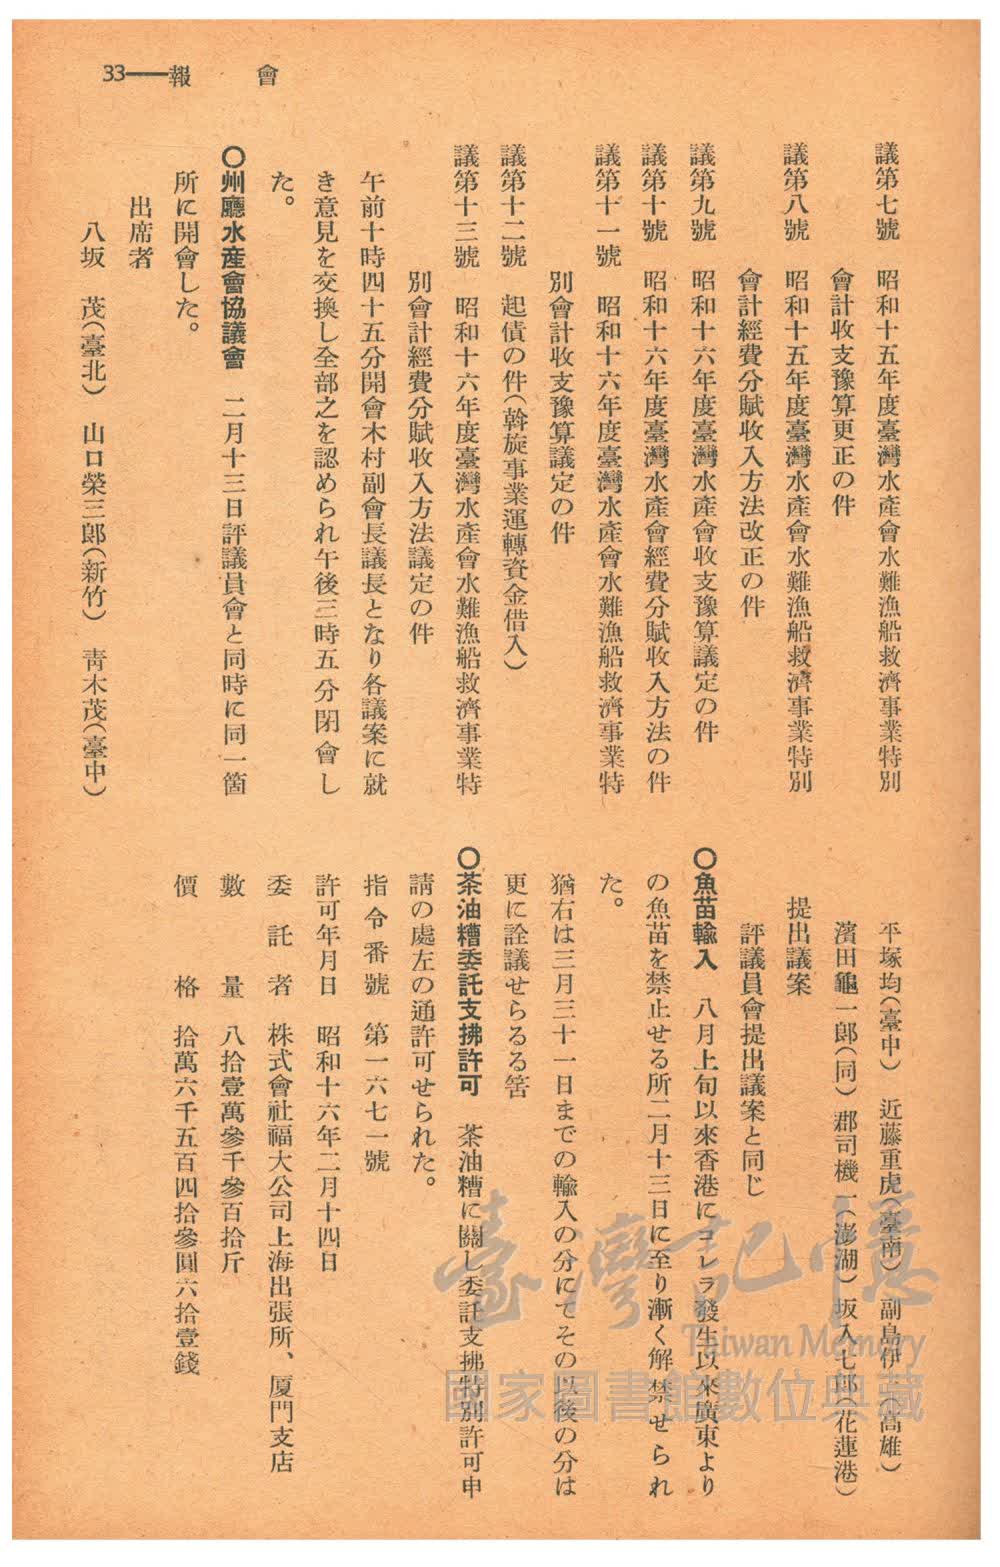 會報——33
議第七號　昭和十五年度臺灣水產會水難漁船救濟事業特別
會計收支豫算更正の件
議第八號　昭和十五年度臺灣水產會水難漁船救濟事業特別
會計經費分賦收入方法改正の件
議第九號　昭和十六年度臺灣水產會收支豫算議定の件
議第十號　昭和十六年度臺灣水產會經費分賦收入方法の件
議第十一號　昭和十六年度臺灣水產會水難漁船救濟事業特
別會計收支豫算議定の件
議第十二號　起債の件（斡旋事業運轉資金借入）
議第十三號　昭和十六年度臺灣水產會水難漁船救濟事業特
別會計經費分賦收入方法議定の件
午前十時四十五分開會木村副會長議長となり各議案に就
き意見を交換し全部之を認められ午後三時五分閉會し
た。
〇州廳水產會協議會　二月十三日評議員會と同時に同一箇
所に開會した。
出席者
八坂　茂（臺北）　山口榮三郎（新竹）　靑木茂（臺中）
平塚均（臺中）　近藤重虎（臺南）　副島伊一（高雄）
濱田龜一郎（同）　郡司機一（澎湖）　坂入七郎（花蓮港）
提出議案
評議員會提出議案と同じ
〇魚苗輸入　八月上旬以來香港にコレラ發生以來廣東より
の魚苗を禁止せる所二月十三日に至り漸く解禁せられ
た。
猶右は三月三十一日までの輸入の分にてその以後の分は
更に詮議せらるる筈
〇茶油糟委託支拂許可　茶油糟に關し委託支拂特別許可申
請の處左の通許可せられた。
指令番號　第一六七一號
許可年月日　昭和十六年二月十四日
委託者　株式會社福大公司上海出張所、厦門支店
數量　八拾壹萬參千參百拾斤
價格　拾萬六千五百四拾參圓六拾壹錢
臺灣記憶
Taiwan Memory
國家圖書館數位典藏